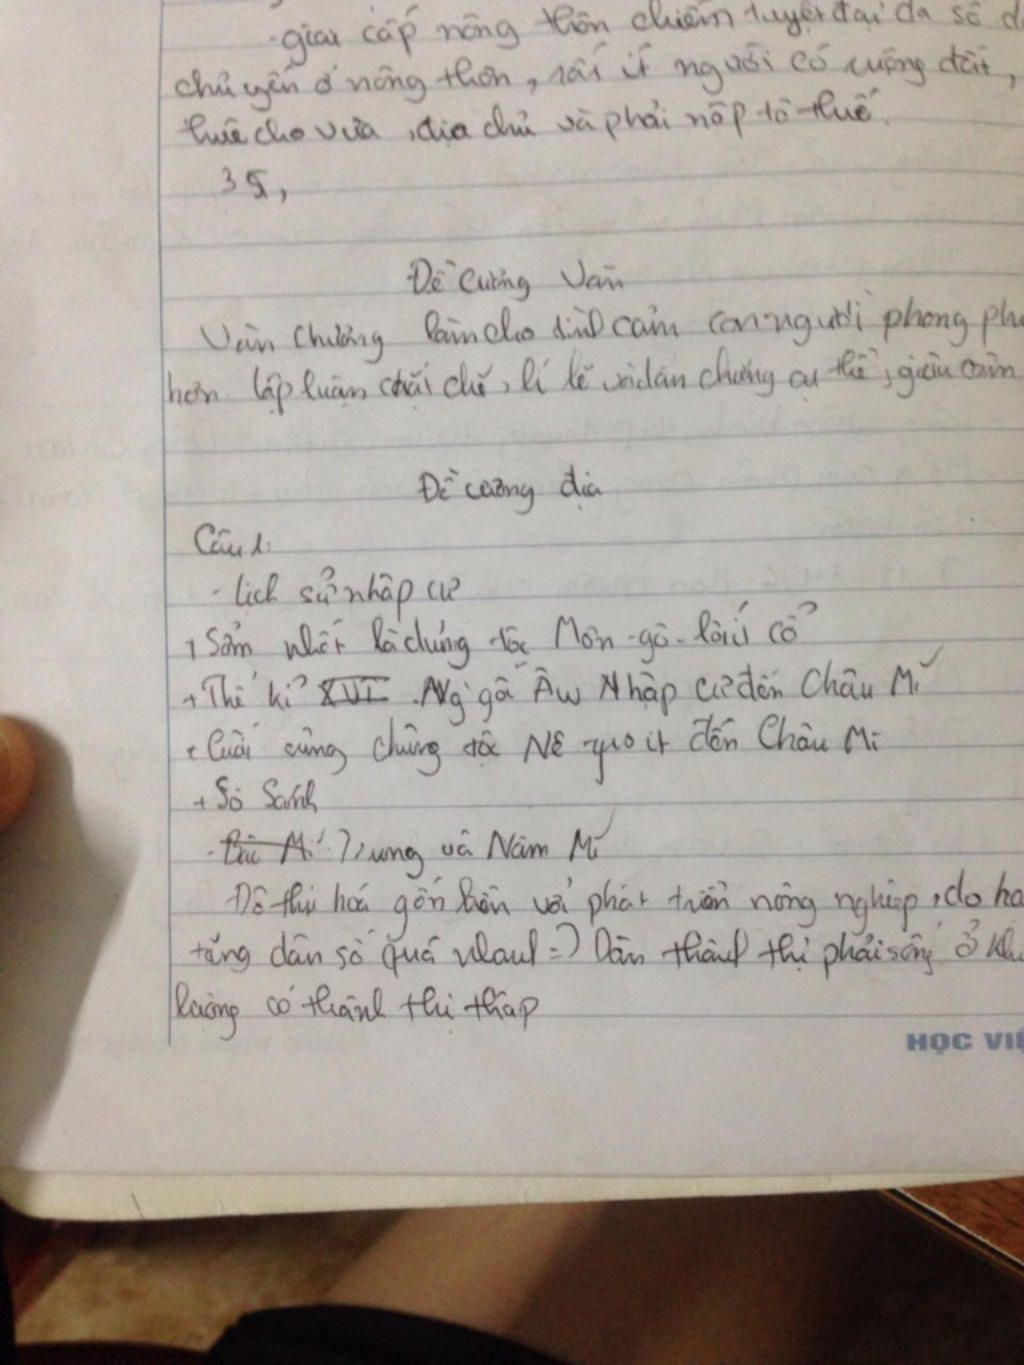 -giai cấp nông thôn chiếm tuyệt đại đa số
chủ yếu ở nông thôn, rất ít người có ruộng đất,
thuê cho vua, địa chủ và phải nộp tô thuế.
35,
Đề Cương Văn
Văn Chương làm cho tình cảm con người phong phú
hơn lập luận chặt chẽ, lí lẽ và dẫn chứng cụ thể, giàu cảm
Đề cương địa
Câu 1:
- lịch sử nhập cư
+ Sớm nhất là chủng tộc Môn-gô-lôit cổ
+ Thế kỉ XVI. Ng' gố Âu Nhập cư đến Châu Mĩ
+ Cuối cùng chủng tộc Nê-grô-it đến Châu Mĩ
+ So Sánh
- Bắc Mĩ Trung và Nam Mĩ
Đô thị hoá gắn liền với phát triển nông nghiệp, do
tăng dân số quá nhanh => Dân thành thị phải sống ở
lương có thành thị thấp
HỌC VI